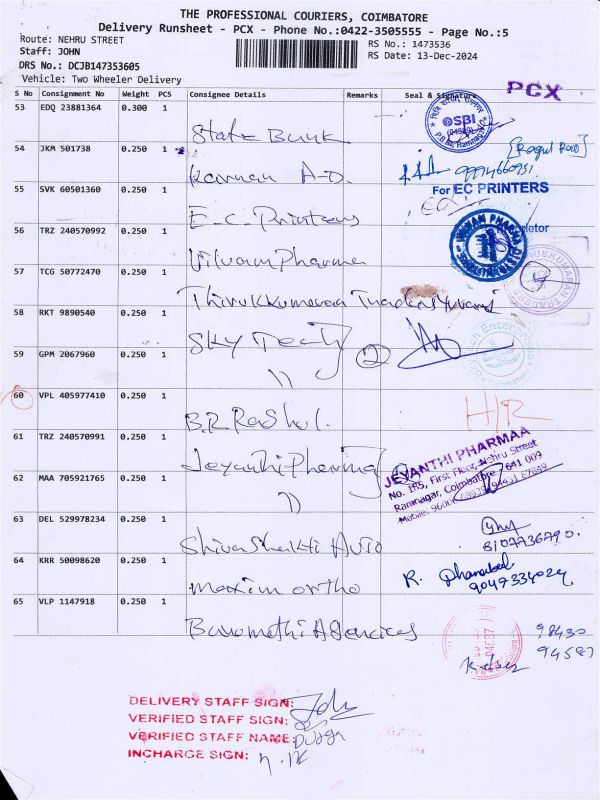 THE PROFESSIONAL COURIERS, COIMBATORE
Delivery Runsheet - PCX - Phone No.:0422-3505555 - Page No.:5
Route: NEHRU STREET
Staff: JOHN
DRS No.: DCJB147353605
Vehicle: Two Wheeler Delivery
RS No.: 1473536
RS Date: 13-Dec-2024
PCX
S No Consignment No Weight PCS Consignee Details Remarks Seal & Signature
53 EDQ 23881364 0.300 1 State Bank
SBI
54 JKM 501738 0.250 1 Kannan A-D.
55 SVK 60501360 0.250 1 E.C. Printers
For EC PRINTERS
56 TRZ 240570992 0.250 1 Vilvam Pharma
57 TCG 50772470 0.250 1 Thirukkumaran Traders
58 RKT 9890540 0.250 1 SKY Tech
59 GPM 2067960 0.250 1 11 2
60 VPL 405977410 0.250 1 B.R. Rahul. H/R
61 TRZ 240570991 0.250 1 Jeyanthi Pharma
JEYANTHI PHARMAA
No. 185, First Floor, Nehru Street
Ramnagar, Coimbatore - 641 009
62 MAA 705921765 0.250 1 11
63 DEL 529978234 0.250 1 Shiva Shakti Auto
64 KRR 50098620 0.250 1 Maxim ortho
65 VLP 1147918 0.250 1 Agencies
98430
94587
DELIVERY STAFF SIGN:
VERIFIED STAFF SIGN:
VERIFIED STAFF NAME: Durga
INCHARGE SIGN: